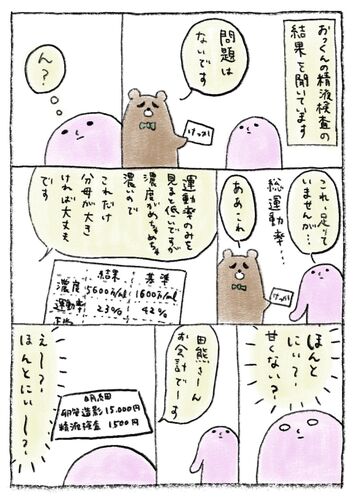 おっくんの精液検査の
結果を聞いています
問題は
ないです
けっか
ん？
これ足りて
いませんが…
総運動率…
ああこれ
けっか
運動率のみを
見ると低いですが
濃度がめちゃめちゃ
濃いので
これだけ
分母が大き
ければ大丈夫
です
結果 基準
濃度 5600万/ml 1600万/ml
運動率 23% 42%
ほんと
にぃ？
甘くない？
田熊さーん
お会計でーす
明細
卵管造影 15.000円
精液検査 1500円
えー？
ほんとにぃー？